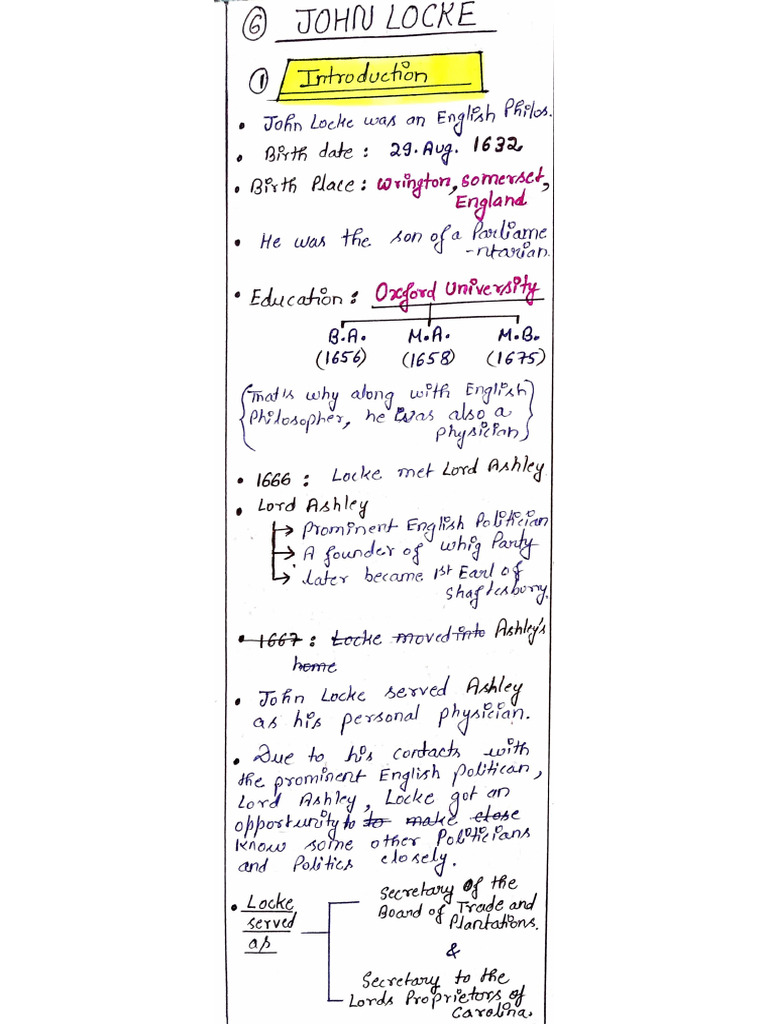 6 JOHN LOCKE
1 Introduction
• John Locke was an English Philos.
• Birth date : 29. Aug. 1632
• Birth Place : Wrington, Somerset,
England
• He was the son of a Parliame
-ntarian.
• Education : Oxford University
B.A. M.A. M.B.
(1656) (1658) (1675)
{That's why along with English
Philosopher, he was also a
physician}
• 1666 : Locke met Lord Ashley
• Lord Ashley
→ Prominent English Politician
→ A founder of Whig Party
→ Later became 1st Earl of
Shaftesbury.
• 1667 : Locke moved into Ashley's
home
• John Locke served Ashley
as his personal physician.
• Due to his contacts with
the prominent English Politican,
Lord Ashley, Locke got an
opportunity to to make close
know some other Politicians
and Politics closely.
• Locke
served
as
Secretary of the
Board of Trade and
Plantations.
&
Secretary to the
Lords Proprietors of
Carolina.